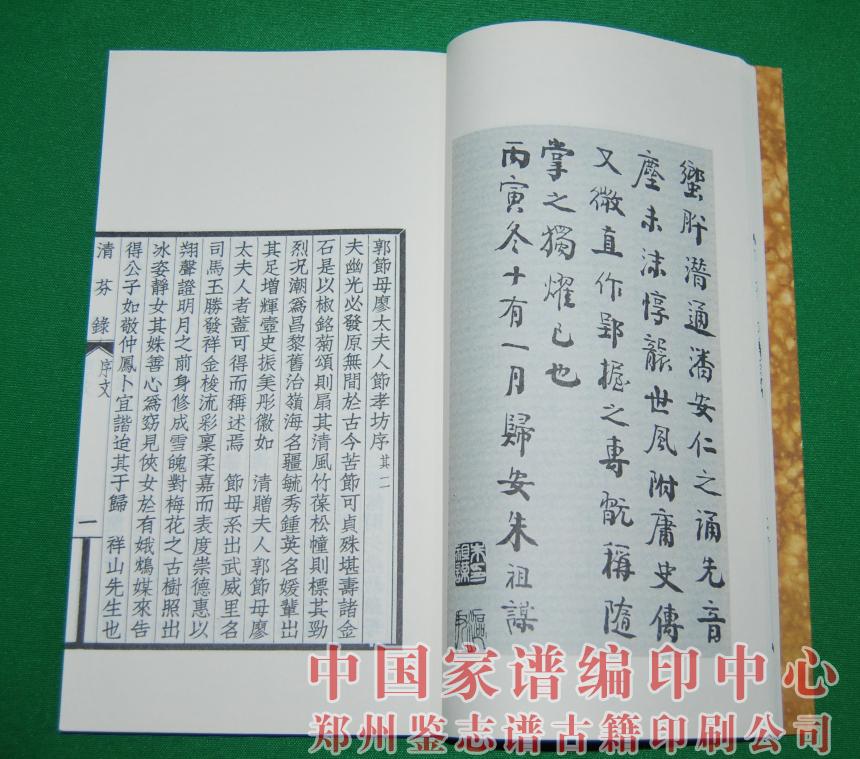 蠁肸潛通潘安仁之誦先音
塵未沬惇龐世風附庸史傳
又微直作郢握之專翫稱隨
掌之獨燿已也
丙寅冬十有一月歸安朱祖謀
郭節母廖太夫人節孝坊序其二
夫幽光必發原無間於古今苦節可貞殊堪壽諸金
石是以椒銘菊頌則扇其清風竹葆松幢則標其勁
烈況潮為昌黎舊治嶺海名疆毓秀鍾英名媛輩出
其足增輝壼史振美彤徽如 清贈夫人郭節母廖
太夫人者蓋可得而稱述焉 節母系出武威里名
司馬王勝發祥金梭流彩稟柔嘉而表度崇德惠以
翔聲證明月之前身修成雪魄對梅花之古樹照出
冰姿靜女其姝善心為窈見俠女於有娥鴆媒來告
得公子如敬仲鳳卜宜諧迨其于歸 祥山先生也
清芬錄
序文
一
中国家谱编印中心
郑州鉴志谱古籍印刷公司